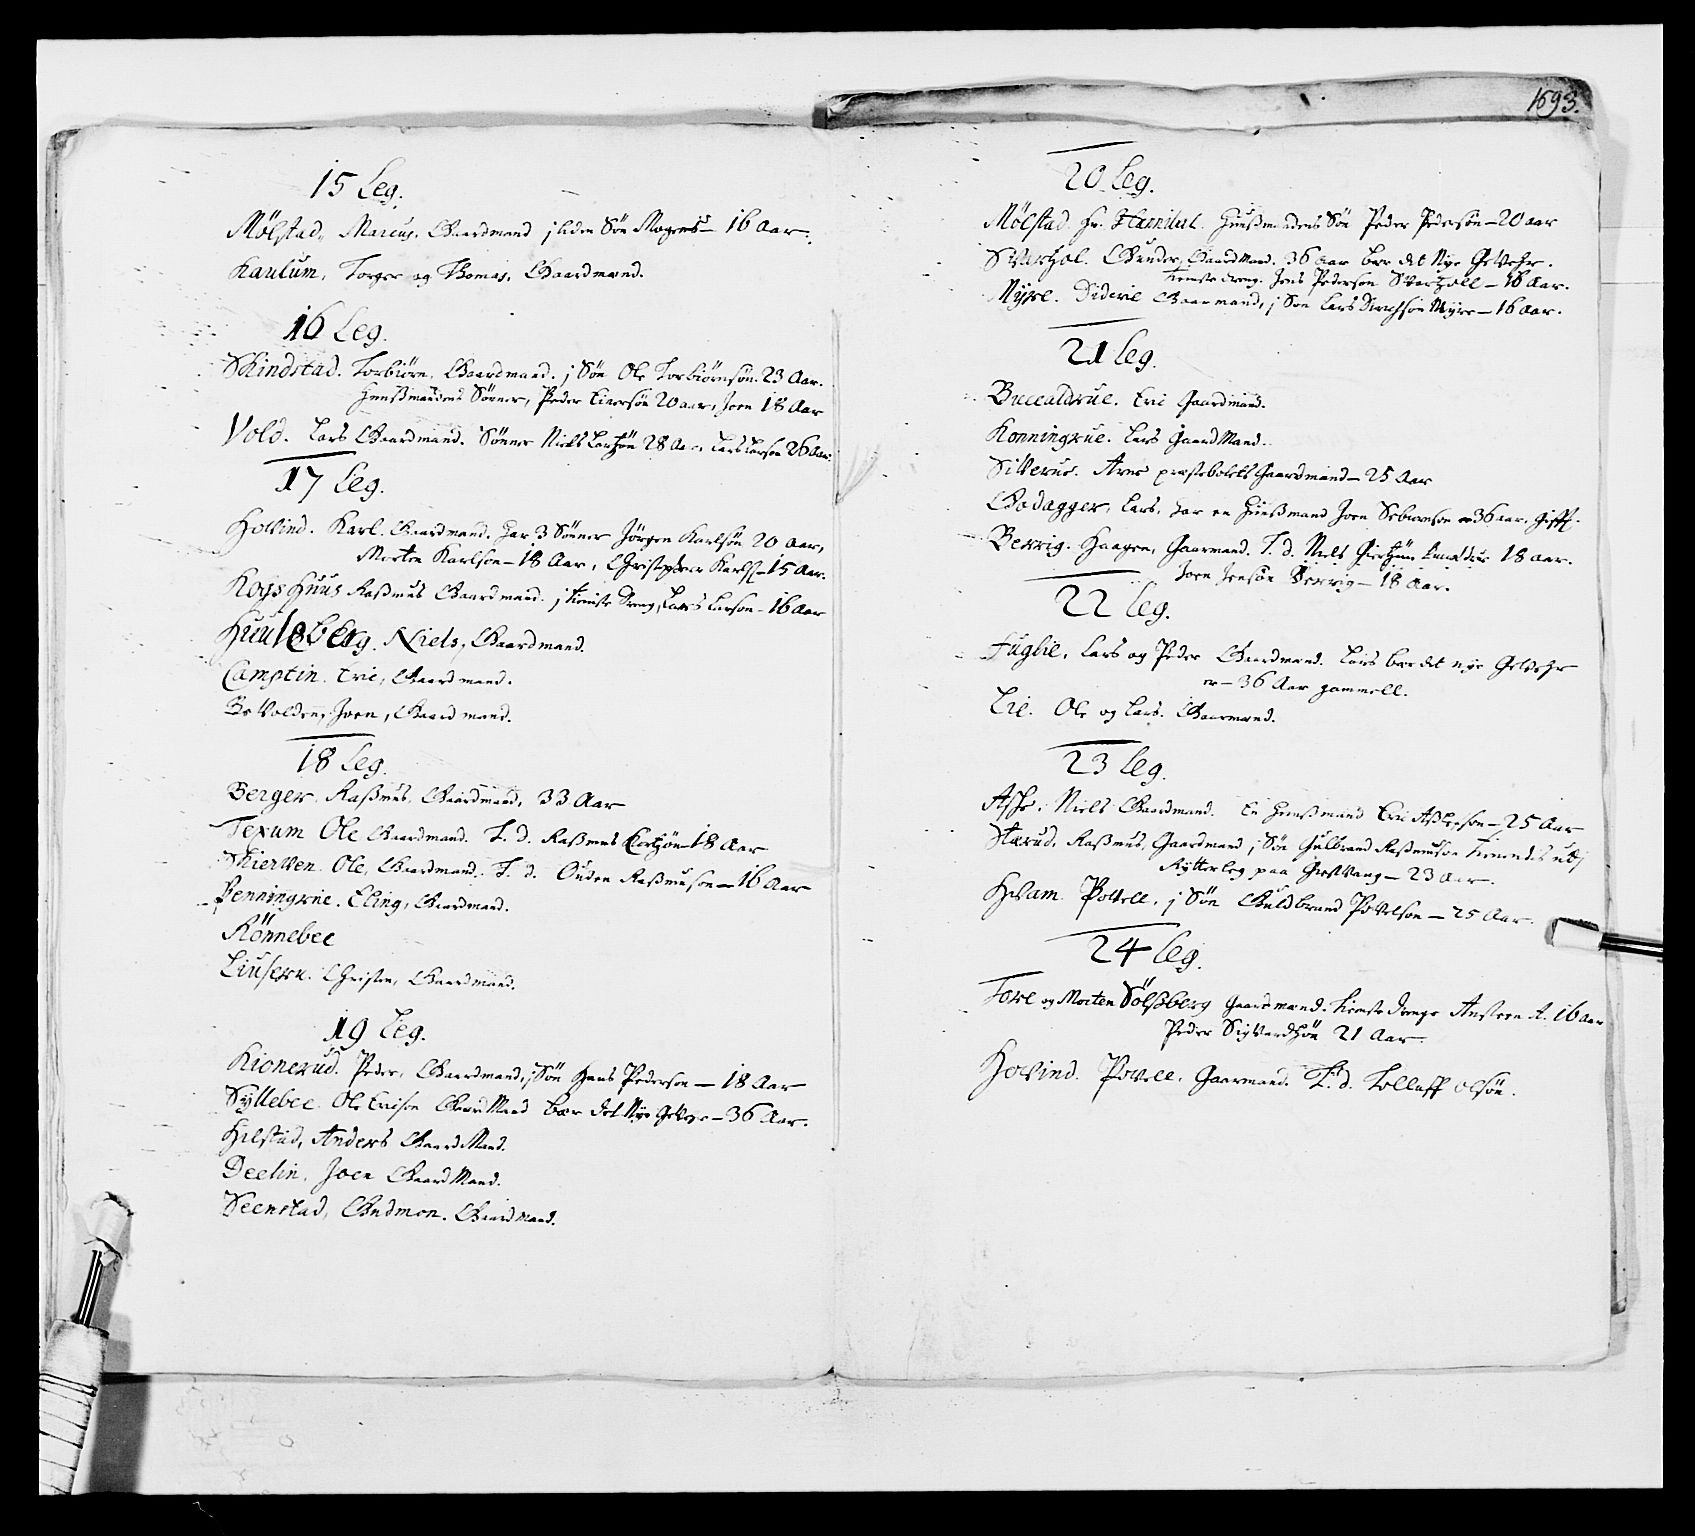 1693.
15 Leg.
Mölstad, Marcus, Gaardmand j liden Sön Mogens – 16 Aar.
Kaulum, Torger og Thomas, Gaardmænd.
16 Leg.
Skindstad. Torbiörn, Gaardmand. j Sön Ole Torbiörnsön 23 Aar.
Huusmandens Sönner, Peder Einersön 20 aar, Joen 18 Aar
Vold. Lars Gaardmand. Sönner Niels Larsön 28 Aar, Lars Larsøn 26 Aar.
17 Leg.
Hovind. Karl. Gaardmand. har 3 Sönner Jörgen Karlsön 20 Aar,
Morten Karlson – 18 Aar, Christopher Karls. – 15 Aar.
Kogs Huus Rasmus Gaardmand. j tieniste Dreng, Lars Larson – 16 Aar
Huulsberg. Niels, Gaardmand.
Camptin. Eric, Gaardmand.
Bevolden, Joen, Gaardmand.
18 Leg.
Berger. Rasmus. Gaardmand, 33 Aar
Texum Ole Gaardmand. T. d. Rasmus 18 Aar
Skierven. Ole, Gaardmand. T. d. Ouden Rasmuson – 16 Aar
Penningrue. Eling, Gaardmand.
Rönnebec
Liuseru. Christen, Gaardmand.
19 Leg.
Kionerud. Peder, Gaardmand, j Sön Hans Pederson – 18 Aar
Syllebec. Ole Erison Gaard Mand bær det Nye Gevær – 36 Aar.
Hilstad, Anders Gaard Mand.
Deelin, Joen Gaard Mand.
Seenstad, Gudmon. Gaardmand.
20 Leg.
Mölstad. Hr. Huusmandens Sön Peder Pedersön – 20 aar
Svarthol. Gunder, Gaardmand. 36 Aar bær det Nye Gevehr.
tieniste dreng. Jens Pederson Svartholl – 16 Aar.
Myre. Dideric Gaarmand, j Sön Lars Myre – 16 Aar.
21 Leg.
Buccaldrue. Eric Gaardmand.
Konningrue. Lars Gaard Mand.
Siverue. Arne præstebolets Gaardmand – 25 Aar
Godagger, Lars, har en Huusmand Joen 36 aar, gifft.
Berrig. Haagen, Gaarmand. T. d. Niels 18 Aar.
Joen Jensön Berrig – 18 Aar.
22 Leg.
Fuglie, Lars og Peder Gaardmænd. Lars bær det nye Gevehr
er – 36 Aar gammell.
Lie. Ole og Lars. Gaarmænd.
23 Leg.
Aske. Niels Gaardmand. En Huusmand Eric – 25 Aar
Starud. Rasmus, Gaardmand j Sön Gulbrand Rasmuson udj
Rytterleg paa – 23 Aar.
Hvam. Povell, j Sön Guldbrand Povelson – 25 Aar.
24 Leg.
Tore og Morten Sölsberg Gaardmænd. tieniste drenge Ansteen A. 16 Aar
Peder Sigvardsön 21 Aar.
Hovind. Povell. Gaarmand. T. d. Tolluff olsön.